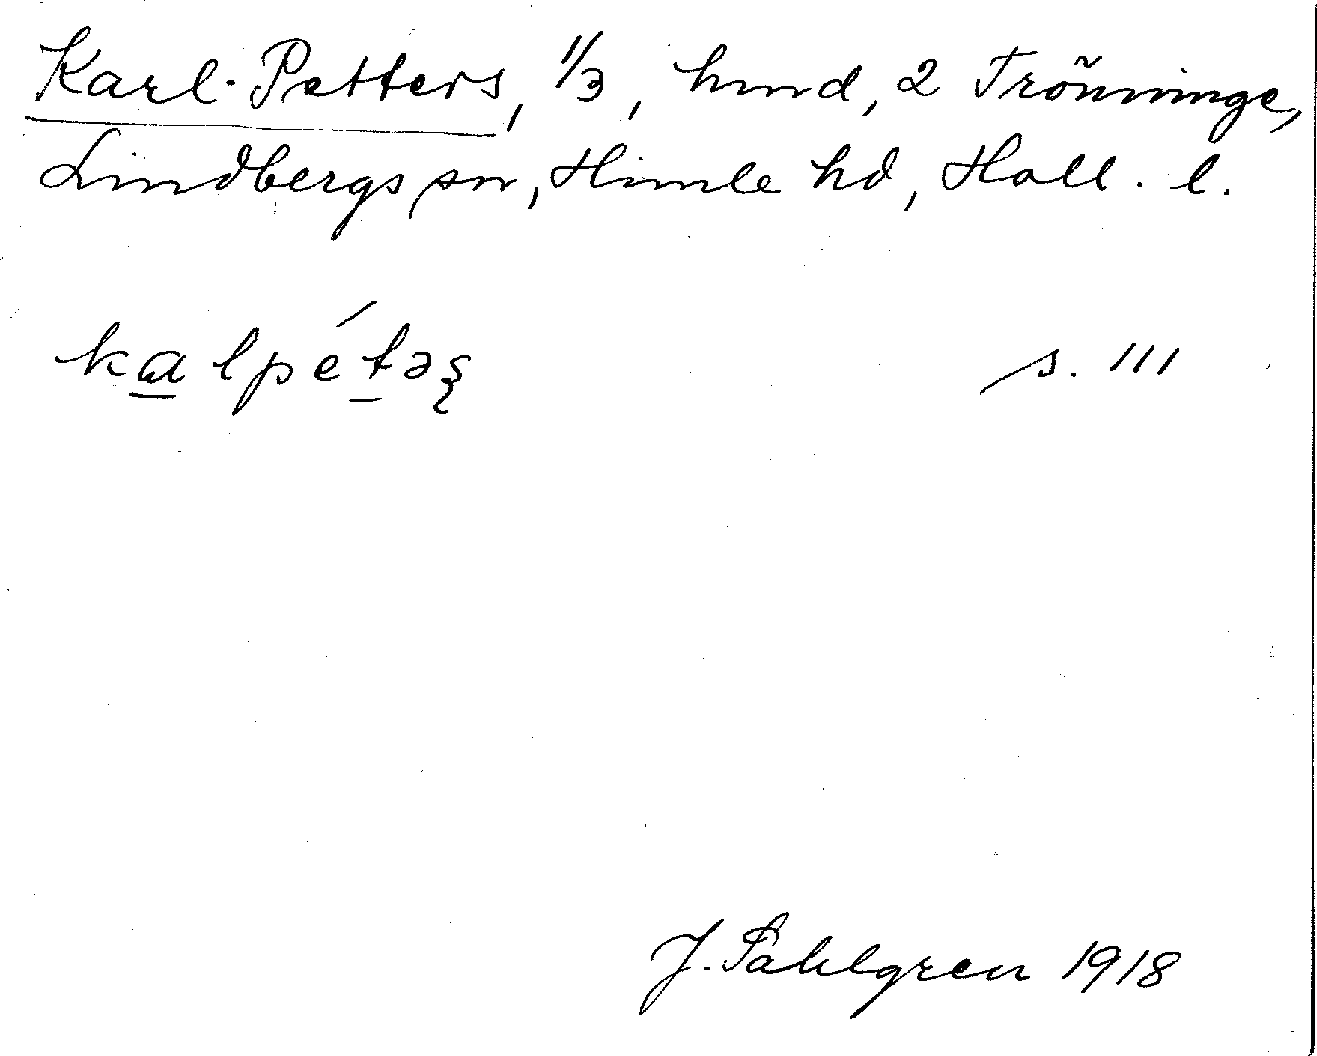 Karl-Petters, 1/3, hmd, 2 Trönninge,
Lindbergs sn, Himle hd, Hall. l.
kalpétəs s. 111
J. Sahlgren 1918